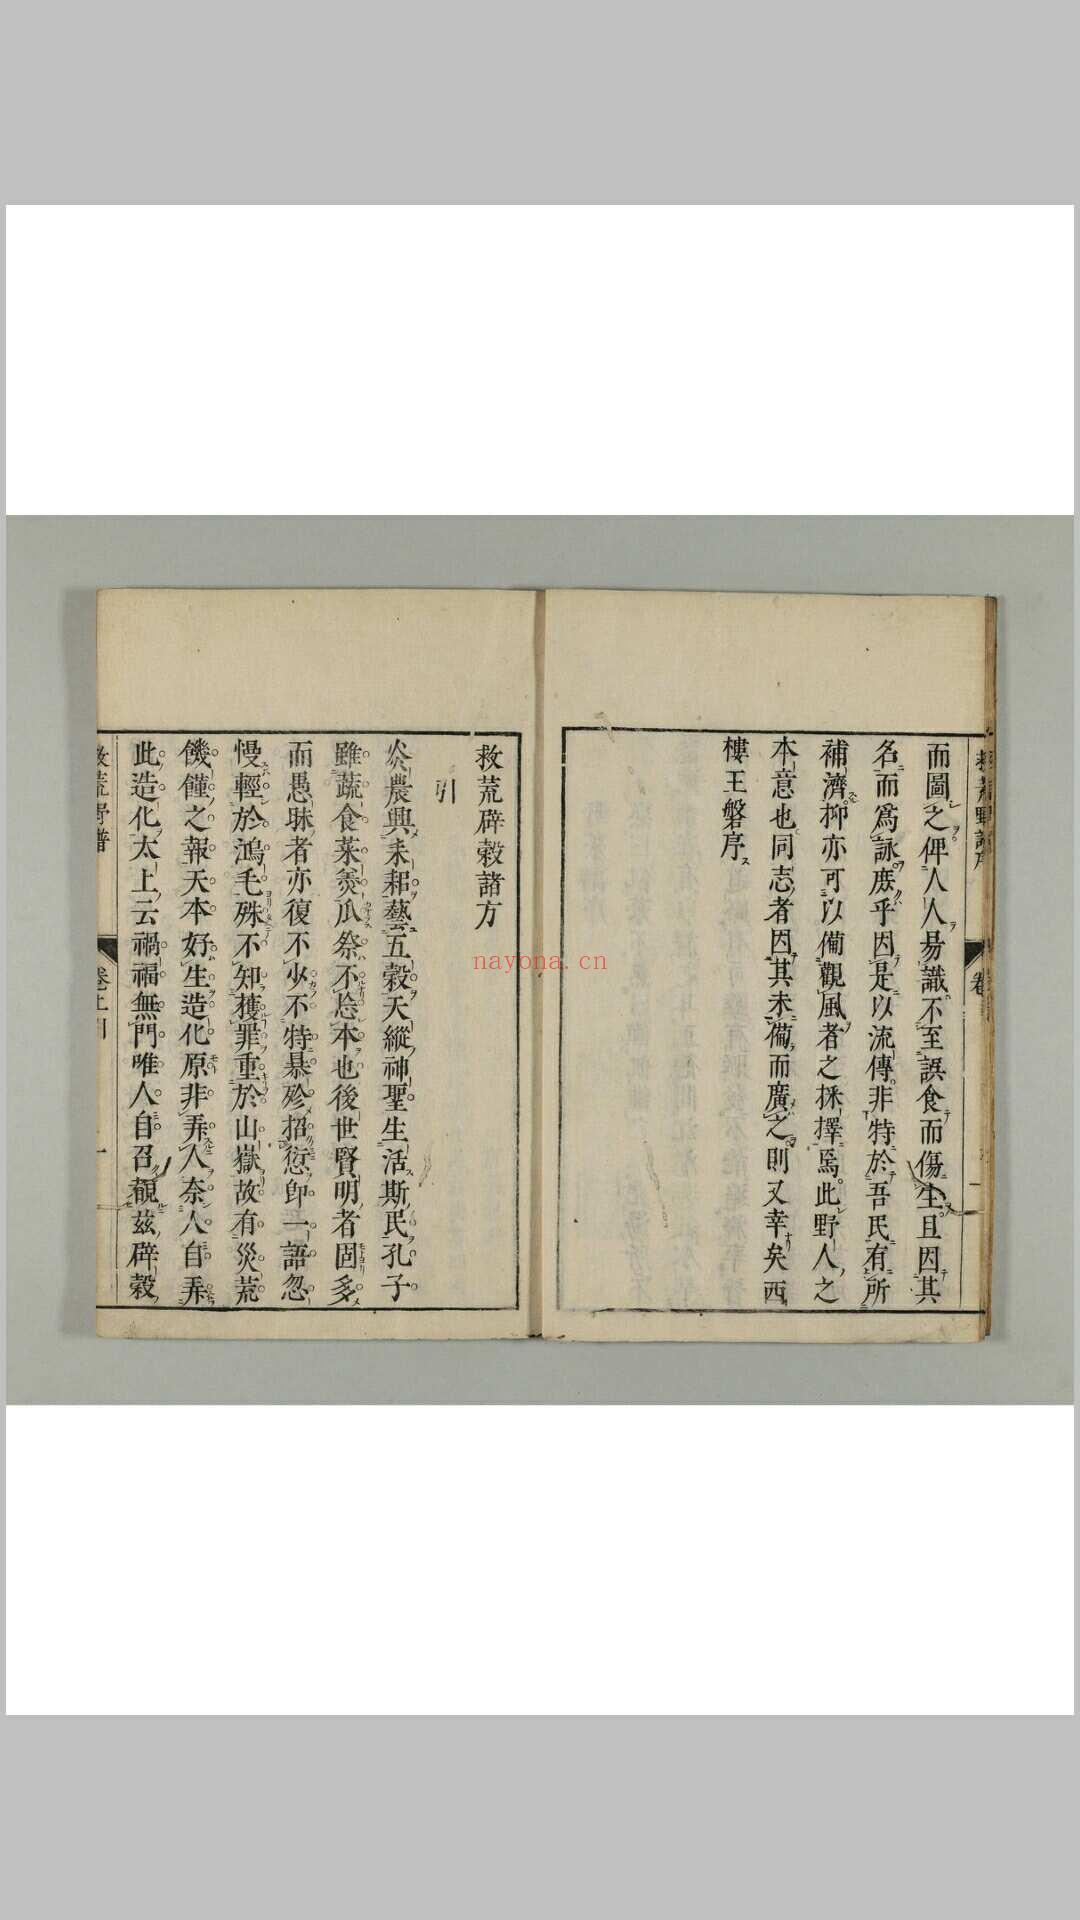 救荒野譜序
而圖之俾人人昜識不至誤食而傷生且因其
名而爲詠庶乎因是以流傳非特於吾民有所
補濟抑亦可以備觀風者之採擇焉此野人之
本意也同志者因其未備而廣之則又幸矣西
樓王磐序
救荒辟穀諸方
引
炎農興耒耜藝五穀天縱神聖生活斯民孔子
雖蔬食菜羮瓜祭不忘本也後世賢明者固多
而愚昧者亦復不少不特暴殄招愆卽一語忽
慢輕於鴻毛殊不知獲罪重於山嶽故有災荒
饑饉之報天本好生造化原非弄人奈人自弄
此造化太上云禍福無門唯人自召覩茲辟穀
救荒野譜 卷上引 一
nayona.cn